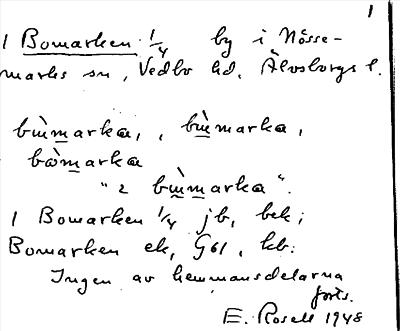 1
1 Bomarken 1/4 by i Nösse-
marks sn, Vedbo hd, Älvsborgs l.
bùmarka, , bùmarka,
bòmarka
" 2 bùmarka ".
1 Bomarken 1/4 jb, bek;
Bomarken ek, G61, kb:
Ingen av hemmansdelarna
forts.
E. Rosell 1948